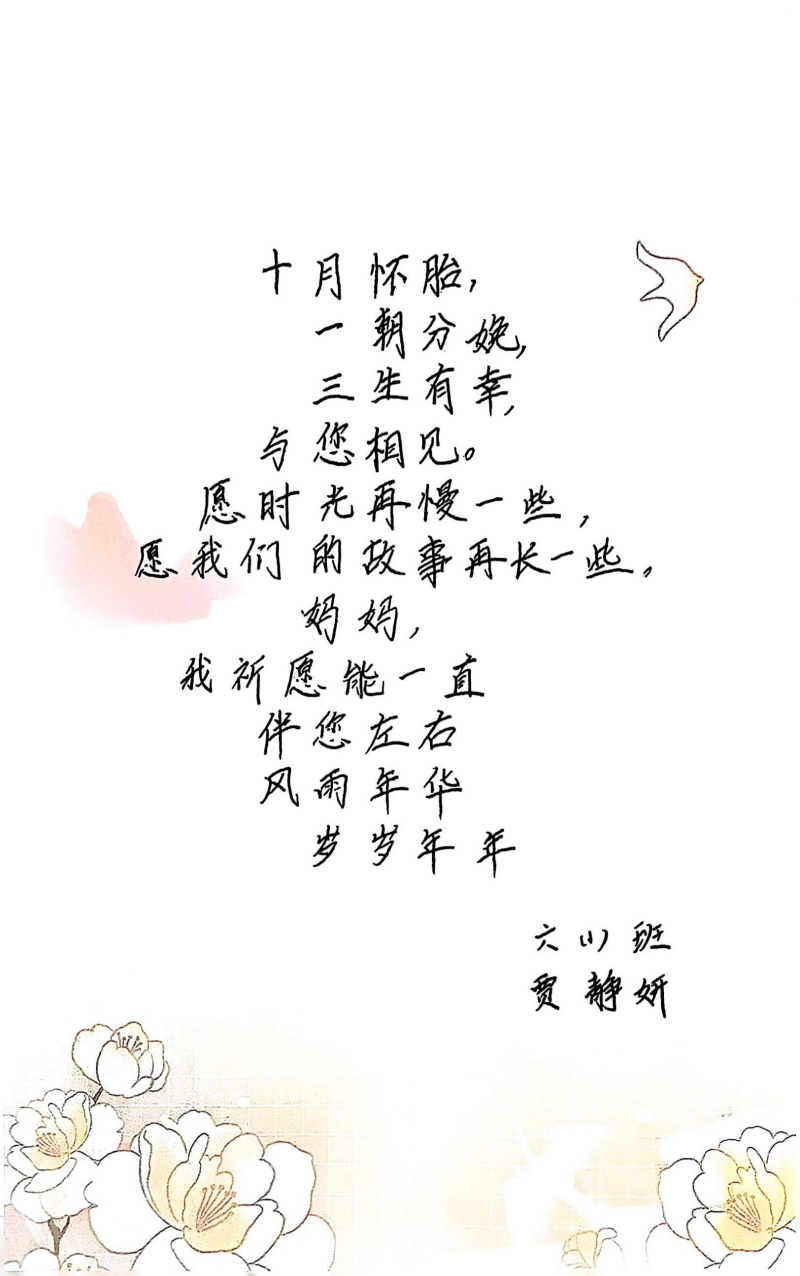 十月怀胎,
一朝分娩,
三生有幸,
与您相见。
愿时光再慢一些,
愿我们的故事再长一些。
妈妈,
我祈愿能一直
伴您左右
风雨年华
岁岁年年
六(1)班
贾静妍